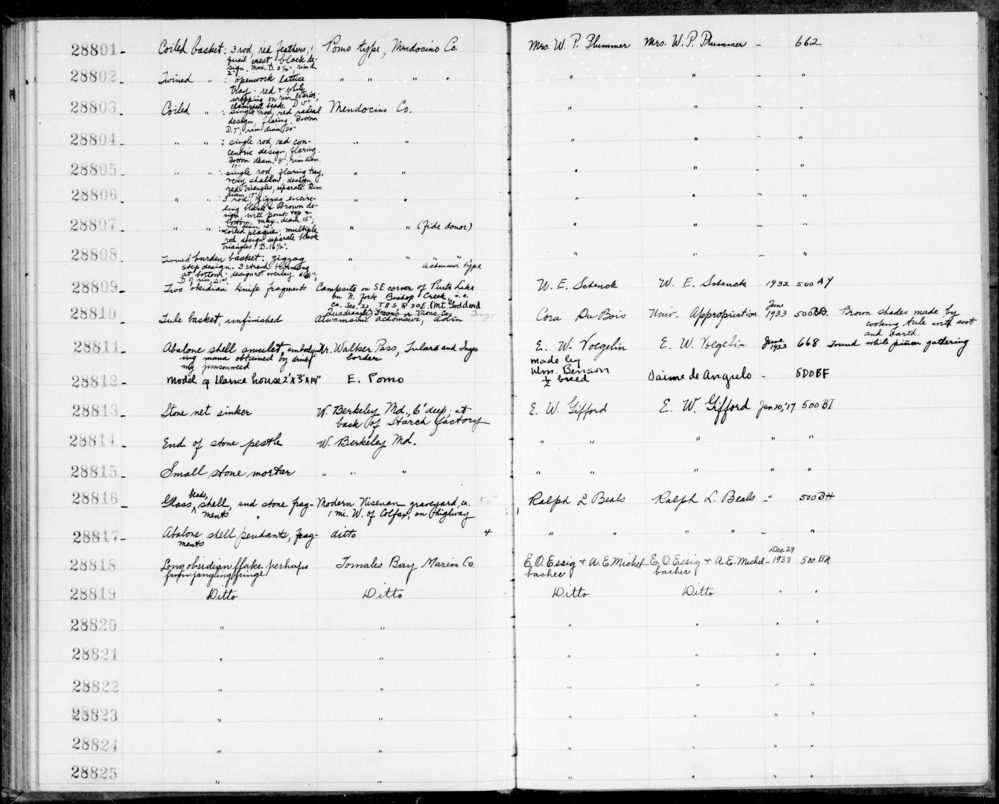 28801- Coiled basket: 3 rod, red feathers, Pomo type, Mendocino Co. Mrs. W. P. Plummer Mrs. W. P. Plummer - 662
quail crest, black de-
28802- Twined " : openwork lattice " " " " " " - "
tray - red & white
28803- Coiled " : single rod, red radial Mendocino Co. " " - "
design, flaring. Bottom
D. 7", rim diam 20"
28804- " " : single rod, red con- " " " " - "
centric design, flaring.
Bottom diam. 8", rim diam.
28805- " " : single rod, flaring tray, " " " " - "
very shallow, design
red triangles, separate. Rim
28806- 3 rod zigzag encirc- " " " " - "
ling black & brown de-
sign, with point top &
bottom. max. diam. 15",
28807- " " : coiled plaque; multiple " " (fide donor) " " - "
rod design separate black
triangles. D. 16½".
28808- Twined burden basket: zigzag " " Achmawi type " " - "
step design. 3 strand
28809- Two obsidian knife fragments Campsite on SE corner of Piute Lake W. E. Schenck W. E. Schenck 1932 500 AY
on N. fork Bishop Creek, i.e.
T8S, R30E (Mt. Goddard
Quadrangle) Fresno or Inyo Co.
28810- Tule basket, unfinished Achomawi, Cora DuBois Univ. Appropriation June 1933 Brown shades made by
cooking tule with soot
and earth.
28811- Abalone shell amulet, Nr. Walker Pass, Tulare and Inyo border E. W. Voegelin E. W. Voegelin June 1933 668 Found while piñon gathering
28812- Model of dance house 2'x3'x14" E. Pomo made by Wm. Benson ½ breed Jaime de Angulo - 500BF
28813- Stone net sinker W. Berkeley Md., 6' deep; at E. W. Gifford E. W. Gifford Jan 10,'17 500 BI
back of Starch factory
28814- End of stone pestle W. Berkeley Md. " " " " "
28815- Small stone mortar " " " " " " " "
28816- Glass beads, shell, and stone frag- Modern Nisenan graveyard, ca. 50' Ralph L Beals Ralph L. Beals -" 500BH
ments 1 mi. W. of Colfax, on highway
28817- Abalone shell pendants, frag- ditto 4 " " " " - "
ments
28818 Long obsidian flake perhaps Tomales Bay, Marin Co. E. O. Essig & A. E. Michelbacher E. O. Essig & A. E. Michelbacher - Dec. 29 1933 500 BR
from jangling fringe
28819 Ditto Ditto Ditto Ditto " "
28820 " " " " " "
28821 " " " " " "
28822 " " " " " "
28823 " " " " " "
28824 " " " " " "
28825 " " " " " "